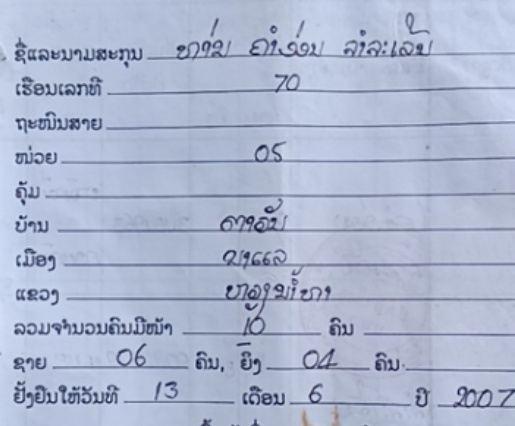 ຊື່ແລະນາມສະກຸນ ທ່ານ ຄຳອ່ອນ
ເຮືອນເລກທີ 70
ຖະໜົນສາຍ
ໜ່ວຍ 05
ຄຸ້ມ
ບ້ານ
ເມືອງ ນາແລ
ແຂວງ ຫລວງນ້ຳທາ
ລວມຈຳນວນຄົນມີໜ້າ 10 ຄົນ
ຊາຍ 06 ຄົນ, ຍິງ 04 ຄົນ.
ຢັ້ງຢືນໃຫ້ວັນທີ 13 ເດືອນ 6 ປີ 2007